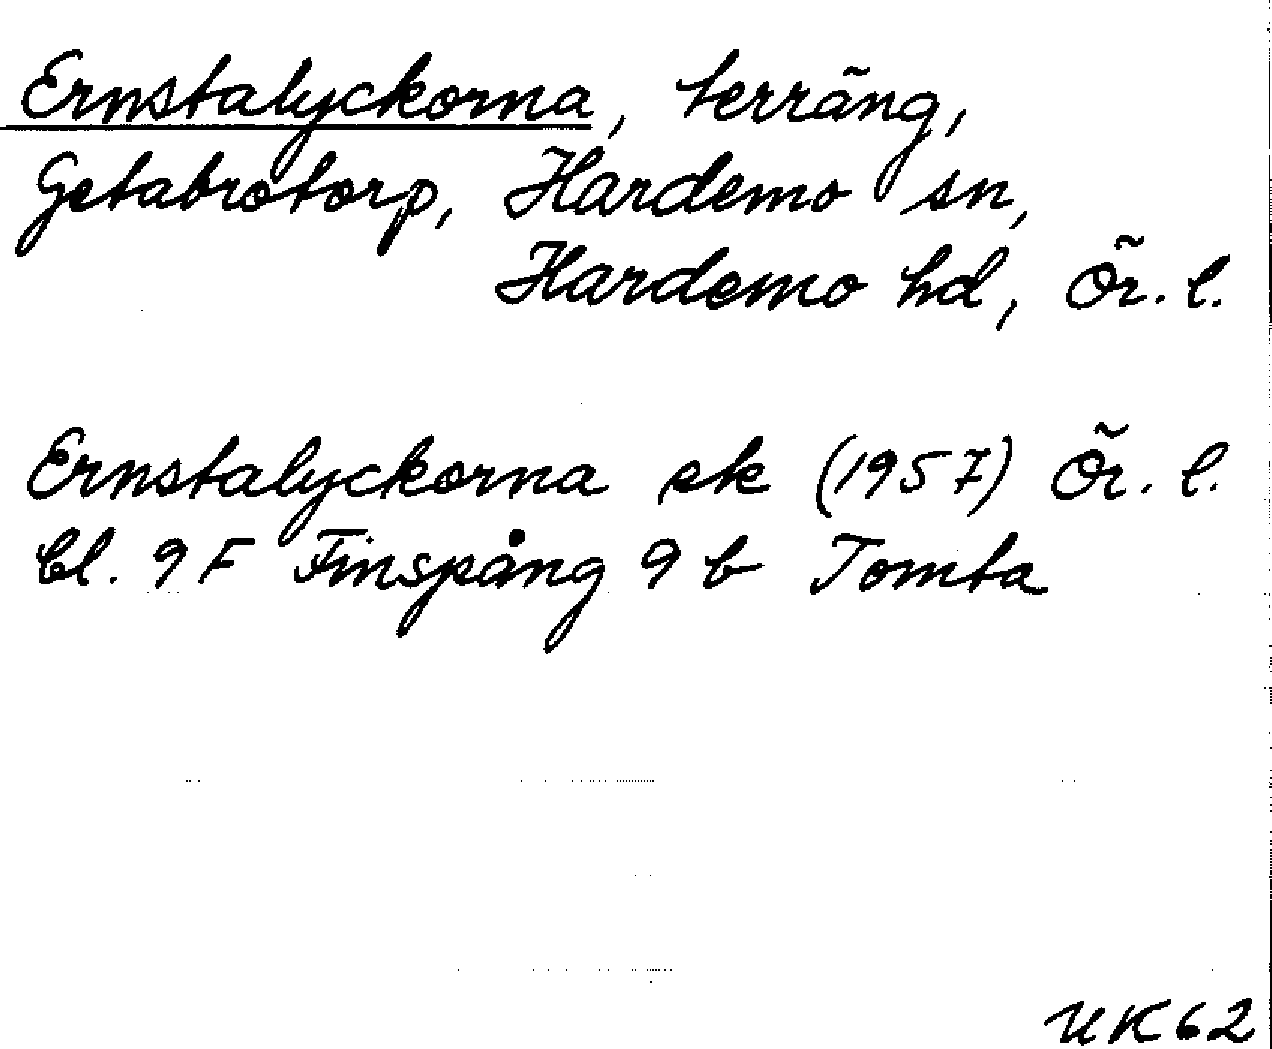 Ernstalyckorna, terräng,
Getabrotorp, Hardemo sn,
Hardemo hd, Ör. l.
Ernstalyckorna ek (1957) Ör. l.
bl. 9 F Finspång 9 b Tomta
UK62